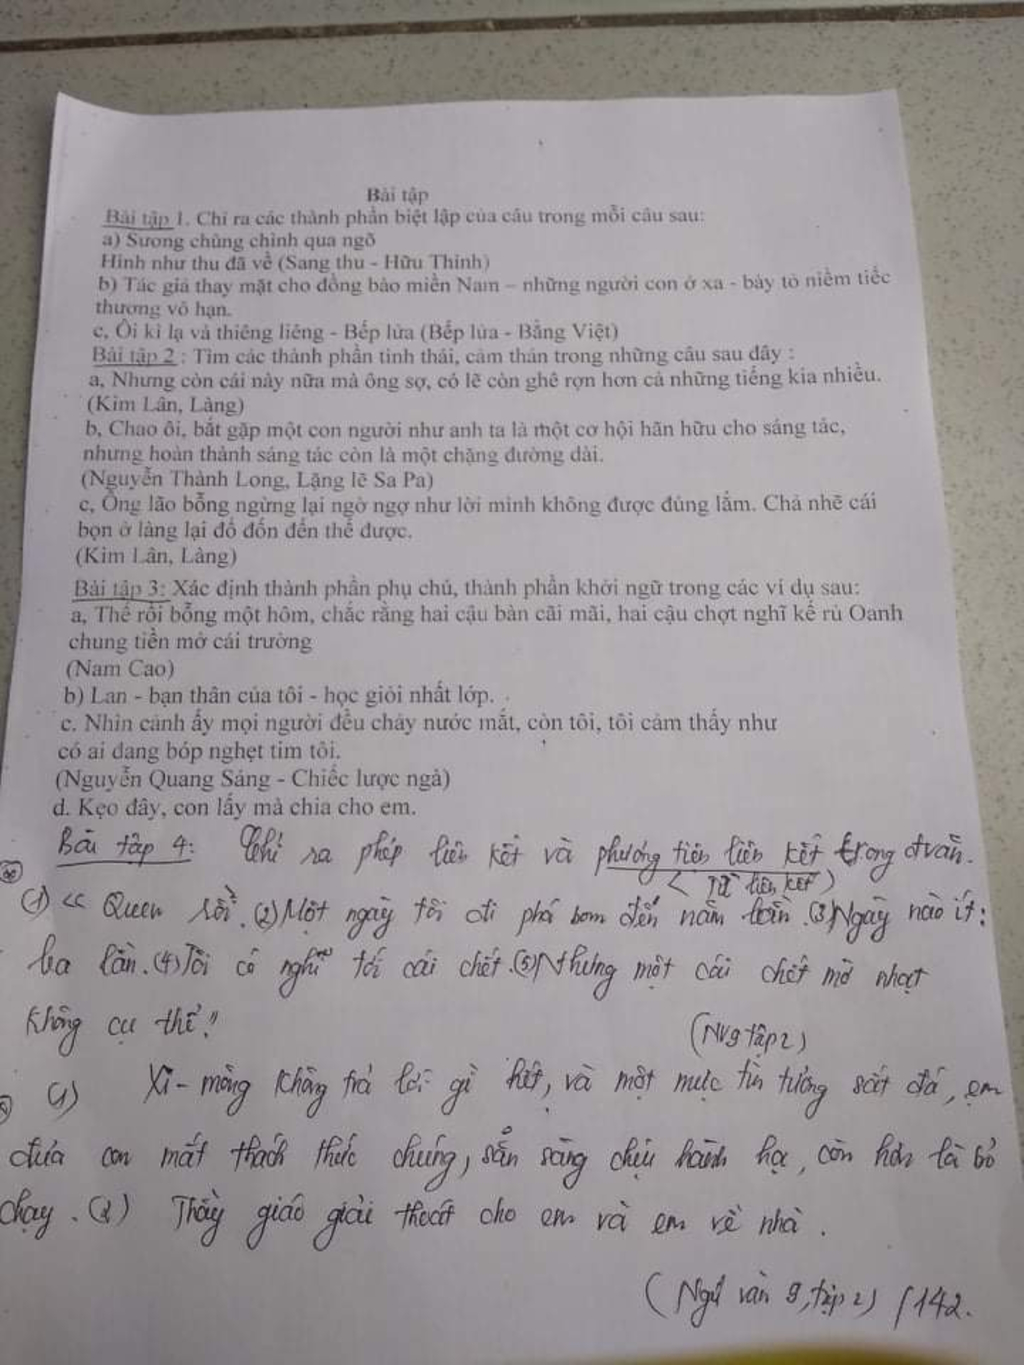 Bài tập
Bài tập 1. Chỉ ra các thành phần biệt lập của câu trong mỗi câu sau:
a) Sương chùng chình qua ngõ
Hình như thu đã về (Sang thu - Hữu Thỉnh)
b) Tác giả thay mặt cho đồng bào miền Nam – những người con ở xa - bày tỏ niềm tiếc
thương vô hạn.
c, Ôi kì lạ và thiêng liêng - Bếp lửa (Bếp lửa - Bằng Việt)
Bài tập 2 : Tìm các thành phần tình thái, cảm thán trong những câu sau đây :
a, Nhưng còn cái này nữa mà ông sợ, có lẽ còn ghê rợn hơn cả những tiếng kia nhiều.
(Kim Lân, Làng)
b, Chao ôi, bắt gặp một con người như anh ta là một cơ hội hãn hữu cho sáng tác,
nhưng hoàn thành sáng tác còn là một chặng đường dài.
(Nguyễn Thành Long, Lặng lẽ Sa Pa)
c, Ông lão bỗng ngừng lại ngờ ngợ như lời mình không được đúng lắm. Chả nhẽ cái
bọn ở làng lại đổ đốn đến thế được.
(Kim Lân, Làng)
Bài tập 3: Xác định thành phần phụ chú, thành phần khởi ngữ trong các ví dụ sau:
a, Thế rồi bỗng một hôm, chắc rằng hai cậu bàn cãi mãi, hai cậu chợt nghĩ kế rủ Oanh
chung tiền mở cái trường
(Nam Cao)
b) Lan - bạn thân của tôi - học giỏi nhất lớp.
c. Nhìn cảnh ấy mọi người đều chảy nước mắt, còn tôi, tôi cảm thấy như
có ai đang bóp nghẹt tim tôi.
(Nguyễn Quang Sáng - Chiếc lược ngà)
d. Kẹo đây, con lấy mà chia cho em.
Bài tập 4: Chỉ ra phép liên kết và phương tiện liên kết trong đvăn.
( Từ liên kết )
(1) << Quen rồi. (2) Một ngày tôi đi phá bom đến năm lần. (3) Ngày nào ít:
ba lần. (4) Tôi có nghĩ tới cái chết. (5) Nhưng một cái chết mờ nhạt
không cụ thể."
(NV9 tập 2)
(1) Xi-mông không trả lời gì hết, và một mực tin tưởng sắt đá, em
đưa con mắt thách thức chúng, sẵn sàng chịu hành hạ, còn hơn là bỏ
chạy. (2) Thầy giáo giải thoát cho em và em về nhà.
(Ngữ văn 9, tập 2) /142.